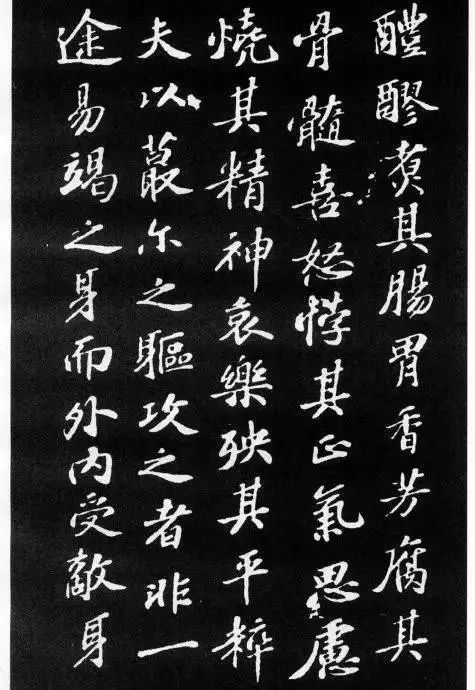 醴醪煑其腸胃香芳腐其
骨髓喜怒悖其正氣思慮
燒其精神哀樂殃其平粹
夫以蕞尔之軀攻之者非一
途易竭之身而外內受敵身